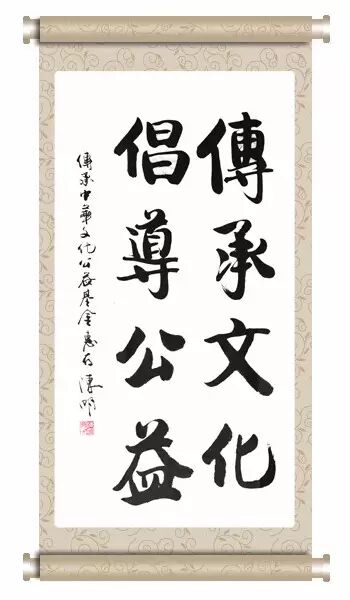 傳承文化
倡導公益
傳承中華文化公益基金惠存